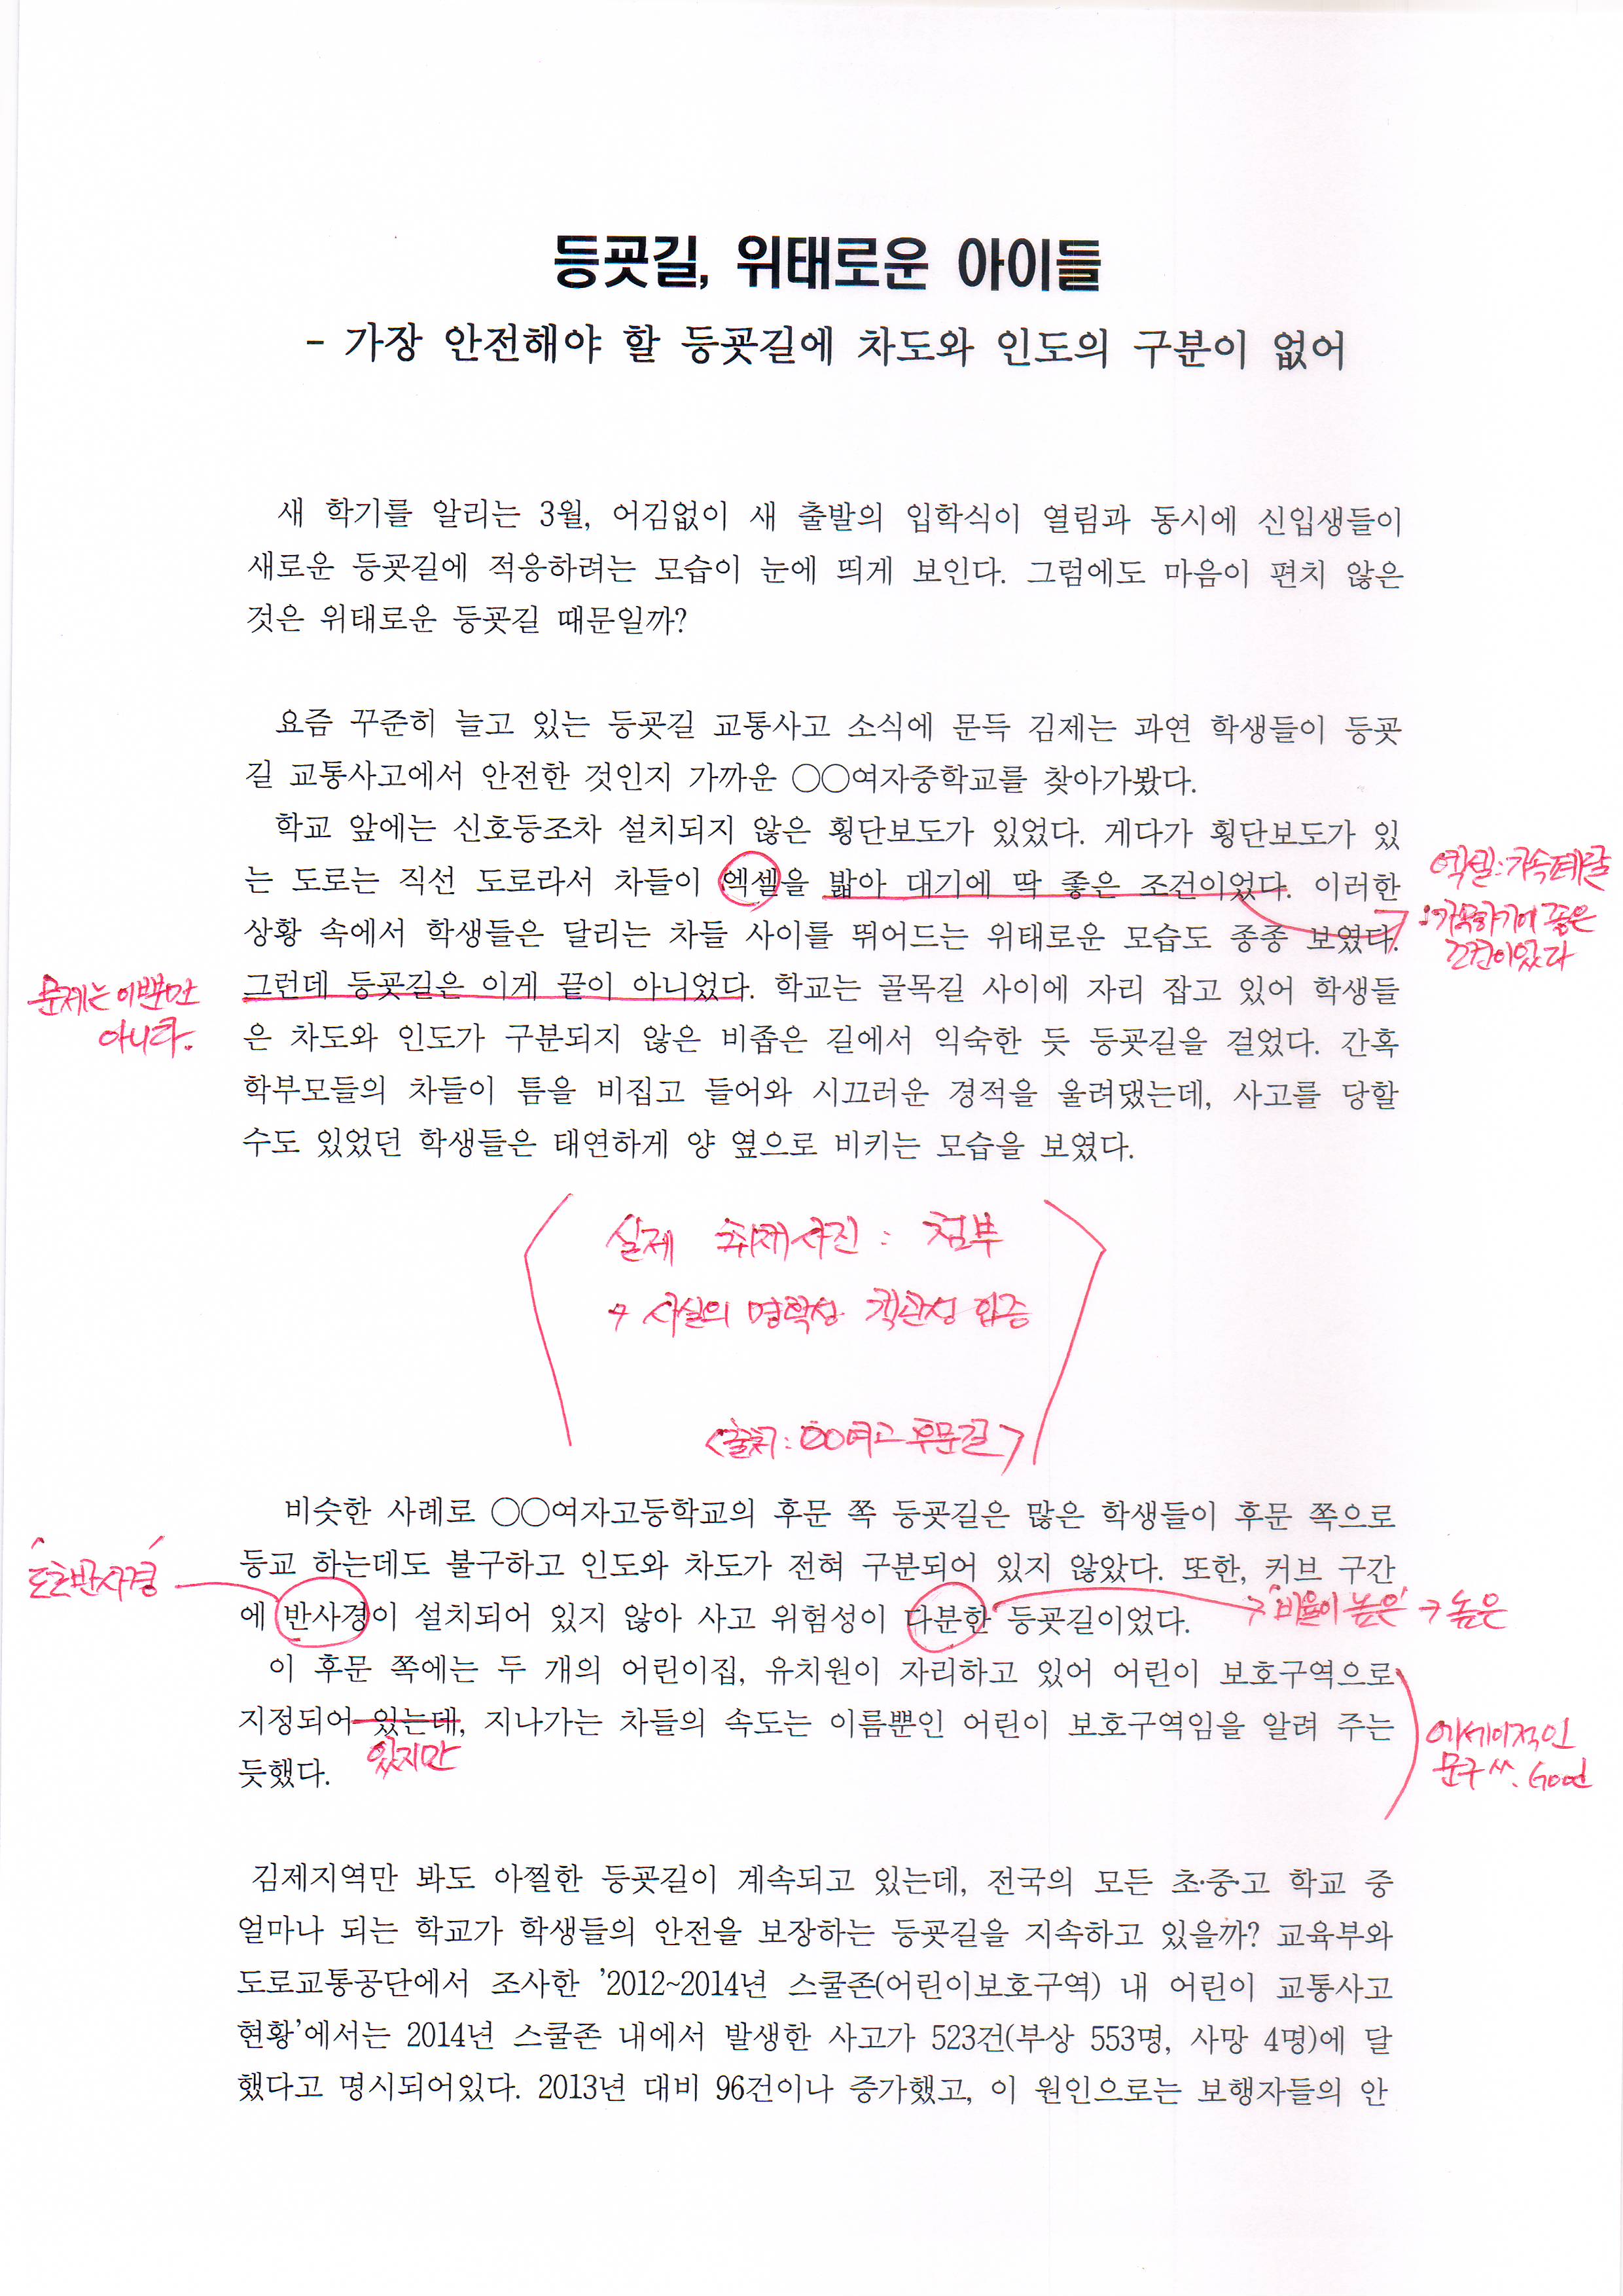 등굣길, 위태로운 아이들
- 가장 안전해야 할 등굣길에 차도와 인도의 구분이 없어
새 학기를 알리는 3월, 어김없이 새 출발의 입학식이 열림과 동시에 신입생들이
새로운 등굣길에 적응하려는 모습이 눈에 띄게 보인다. 그럼에도 마음이 편치 않은
것은 위태로운 등굣길 때문일까?
요즘 꾸준히 늘고 있는 등굣길 교통사고 소식에 문득 김제는 과연 학생들이 등굣
길 교통사고에서 안전한 것인지 가까운 〇〇여자중학교를 찾아가봤다.
학교 앞에는 신호등조차 설치되지 않은 횡단보도가 있었다. 게다가 횡단보도가 있
는 도로는 직선 도로라서 차들이 엑셀을 밟아 대기에 딱 좋은 조건이었다. 이러한
엑셀:가속페달
:가속하기에 좋은
조건이었다
상황 속에서 학생들은 달리는 차들 사이를 뛰어드는 위태로운 모습도 종종 보였다.
그런데 등굣길은 이게 끝이 아니었다. 학교는 골목길 사이에 자리 잡고 있어 학생들
문제는 이뿐만
아니다.
은 차도와 인도가 구분되지 않은 비좁은 길에서 익숙한 듯 등굣길을 걸었다. 간혹
학부모들의 차들이 틈을 비집고 들어와 시끄러운 경적을 울려댔는데, 사고를 당할
수도 있었던 학생들은 태연하게 양 옆으로 비키는 모습을 보였다.
실제 취재사진 : 첨부
→ 사실의 명확성 객관성 입증
<출처: 〇〇여고 후문길>
비슷한 사례로 〇〇여자고등학교의 후문 쪽 등굣길은 많은 학생들이 후문 쪽으로
등교 하는데도 불구하고 인도와 차도가 전혀 구분되어 있지 않았다. 또한, 커브 구간
도로반사경
에 반사경이 설치되어 있지 않아 사고 위험성이 다분한 등굣길이었다.
→ '비율이 높은' → 높은
이 후문 쪽에는 두 개의 어린이집, 유치원이 자리하고 있어 어린이 보호구역으로
지정되어 있는데, 지나가는 차들의 속도는 이름뿐인 어린이 보호구역임을 알려 주는
있지만
듯했다.
에세이적인
문구 ^^. Good
김제지역만 봐도 아찔한 등굣길이 계속되고 있는데, 전국의 모든 초·중·고 학교 중
얼마나 되는 학교가 학생들의 안전을 보장하는 등굣길을 지속하고 있을까? 교육부와
도로교통공단에서 조사한 '2012~2014년 스쿨존(어린이보호구역) 내 어린이 교통사고
현황'에서는 2014년 스쿨존 내에서 발생한 사고가 523건(부상 553명, 사망 4명)에 달
했다고 명시되어있다. 2013년 대비 96건이나 증가했고, 이 원인으로는 보행자들의 안